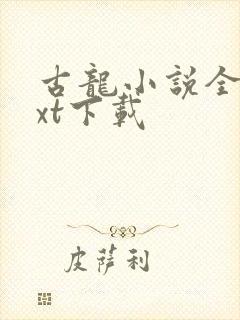 古龍小説全
xt下載
皮薩利